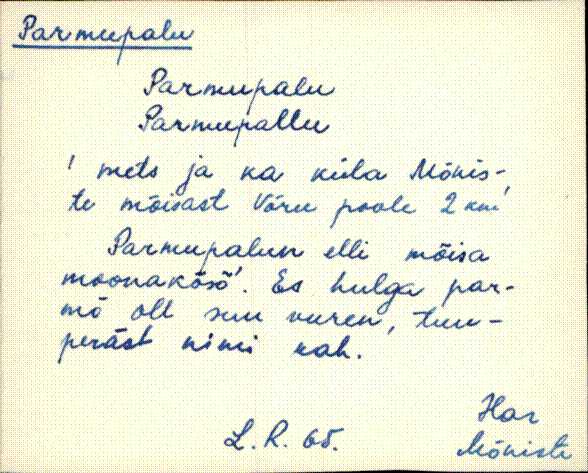 Parmupalu
Parmupalu
Parmupallu
' mets ja ka küla Mõnis-
te mõisast Võru poole 2 km'
Parmupalun elli mõisa
moonakõsõ'. Es hulga par-
mõ oll suu veeren, tuu-
peräst nimi kah.
L. R. 65.
Har
Mõniste